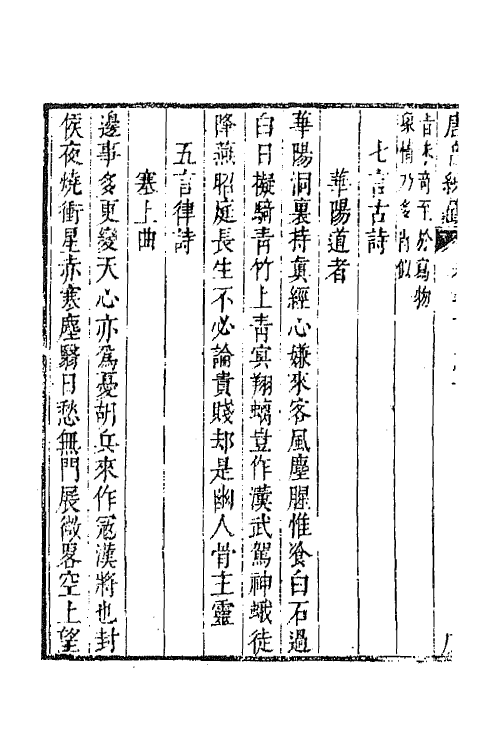 皆未奇至於寫物
衆情乃多肖似
七言古詩
華陽道者
華陽洞裏持真經心嫌來客風塵腥惟飡白石過
白日擬騎青竹上青冥翔螭豈作漢武駕神蛾徒
降燕昭庭長生不必論貴賤却是幽人骨主靈
五言律詩
塞上曲
邊事多更變天心亦爲憂胡兵來作寇漢將也封
侯夜燒衝星赤寒塵翳日愁無門展微畧空上望